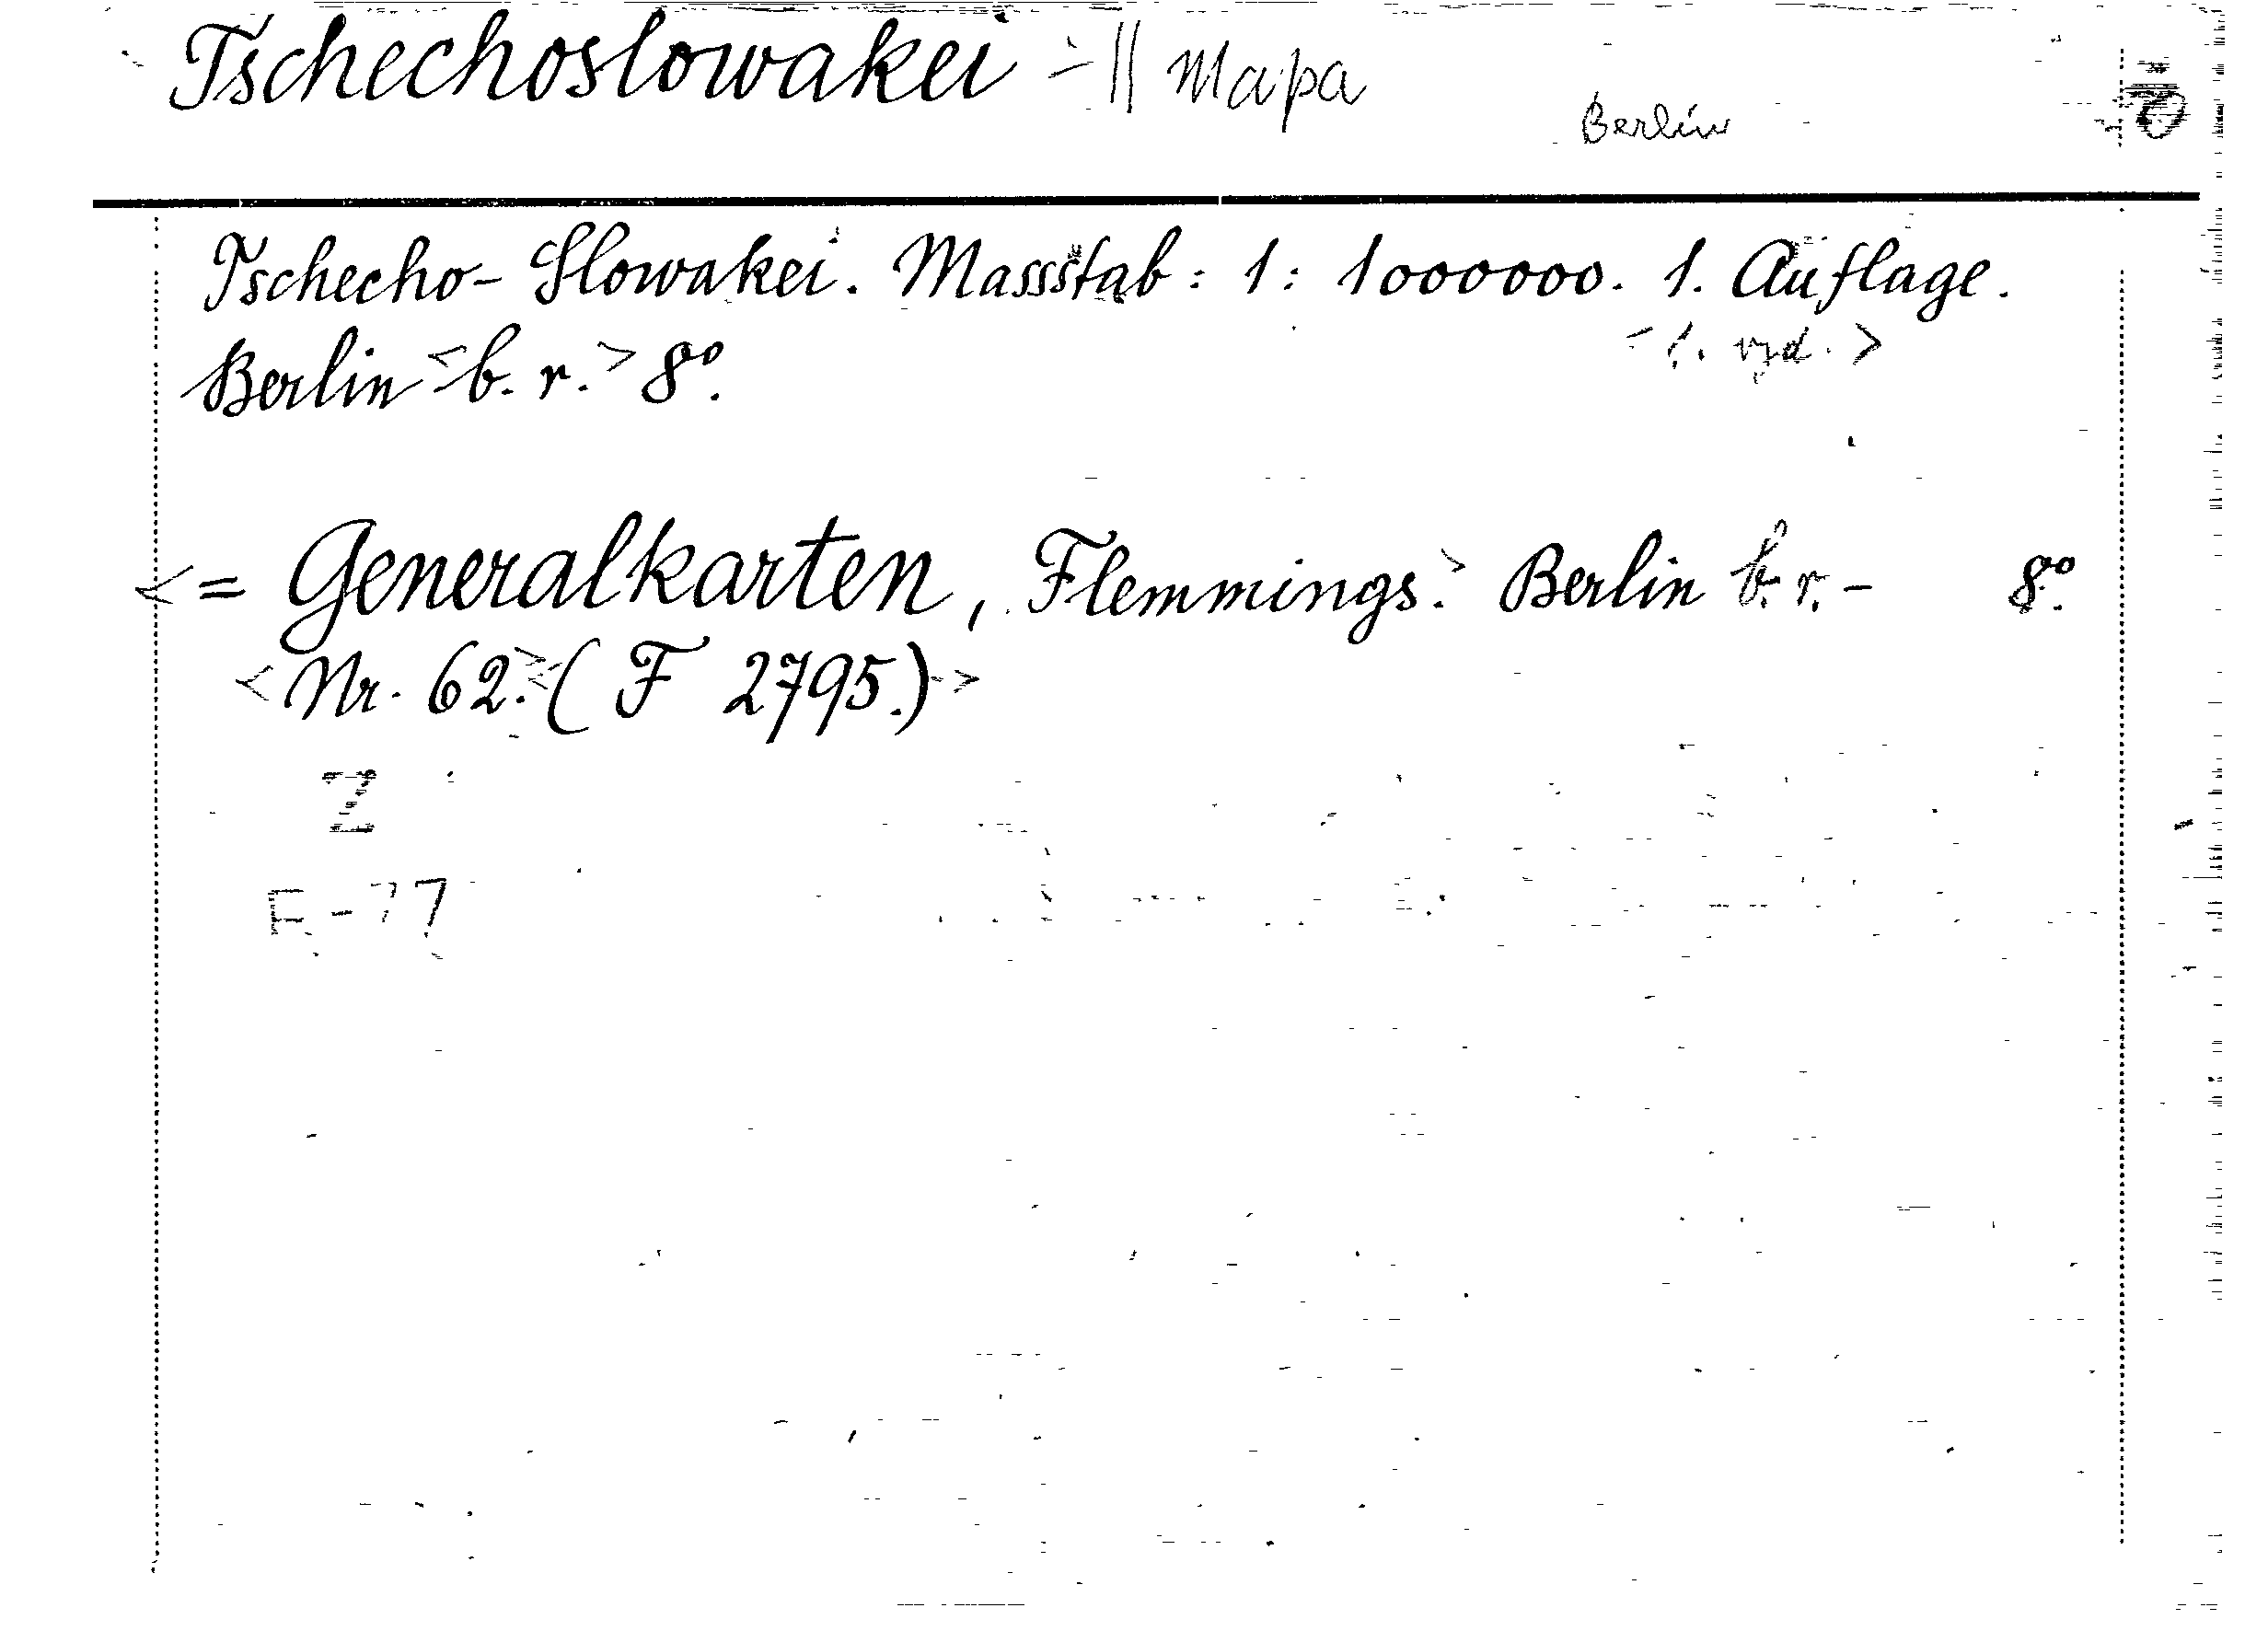 Tschechoslowakei - || Mapa
Berlin
Tschecho-Slowakei. Massstab: 1: 1000000. 1. Auflage.
<1. vyd.>
Berlin <b. r.> 8°.
<= Generalkarten, Flemmings.> Berlin b. r. - 8°.
<Nr. 62.> <(F 2795.)>
Z